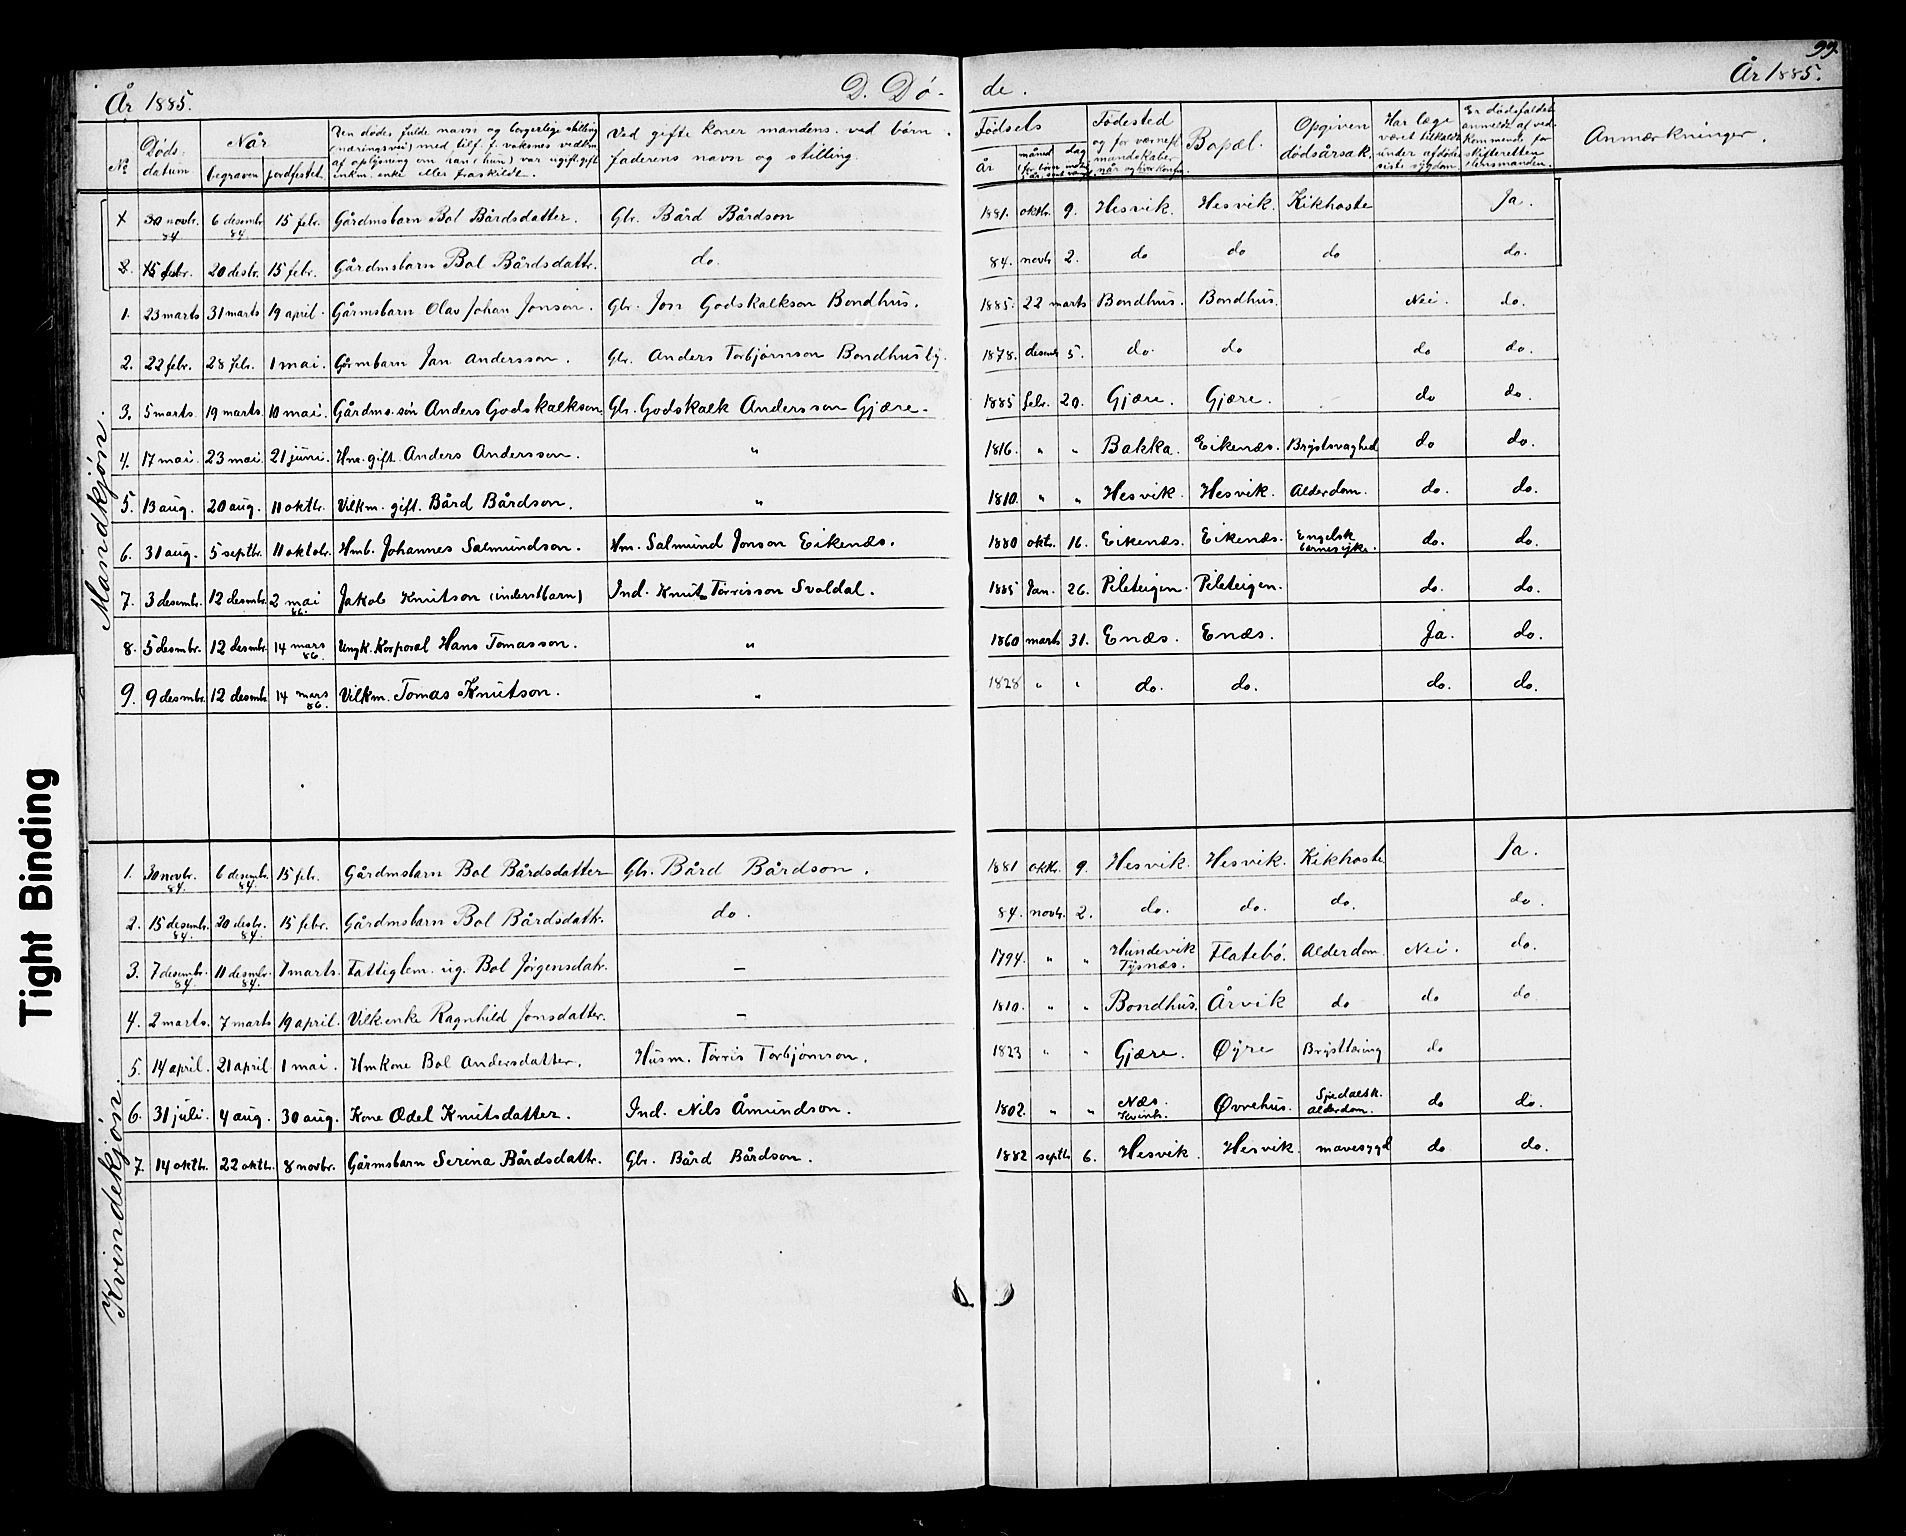 99.
År 1885. D. Dö- de. År 1885.
No Döds- datum Når begraven jordfestet. Den dödes fulde navn og borgerlige stilling (næringsvei) med tilf. f. voksnes vedkm. af oplysning om han (hun) var ugift, gift enkm. enke eller fraskildt. Ved gifte koner mandens, ved börn faderens navn og stilling. Födsels År måned dag Födested og for værnepl. mandskaber når og hvor konf. Bopæl. Opgiven dödsårsak. Har læge været tilkaldt under afdödes siste sygdom. Er dödsfaldet anmeldt af vedkommende for skifteretten lensmanden. Anmærkninger.
Mandkjön.
1 30 novbr. 84 6 desembr 84 15 febr. Gårdmsbarn Bol Bårdsdatter. Gbr. Bård Bårdson 1881. oktbr. 9. Hesvik. Hesvik. Kikhoste Ja.
2. 15 febr. 20 desbr. 15 febr. Gårdmsbarn Bol Bårdsdattr. do. 84. novbr 2. do do do do.
1. 23 marts 31 marts 19 april. Gårmsbarn Olav Johan Jonson. Gbr. Jon Godskalkson Bondhus. 1885. 22 marts Bondhus. Bondhus. Nei. do.
2. 22 febr. 28 febr. 1 mai. Gårmbarn Jan Andersson. Gbr. Anders Torbjörnson Bondhus 1878. desemb 5. do. do do do.
3. 5 marts 19 marts. 10 mai. Gårdms. sön Anders Godskalkson Gbr. Godskalk Andersson Gjære. 1885 febr. 20. Gjære. Gjære. do do.
4. 17 mai 23 mai. 21 juni. Hm. gift. Anders Andersson. " 1816. " " Bakka. Eikenæs. Brystsvaghed do do.
5. 13 aug. 20 aug. 11 oktbr. Vilkm. gift. Bård Bårdson. " 1810. " " Hesvik. Hesvik. Alderdom. do. do.
6. 31 aug. 5 septbr. 11 oktobr. Hmb. Johannes Salmundson. Hm. Salmund Jonson Eikenæs. 1880 oktr. 16. Eikenæs. Eikenæs. Engelsk barnesyke. do. do.
7. 3 desembr. 12 desmbr. 2 mai 86. Jakob Knutson (inderstbarn) Ind. Knut Tørrisson Svoldal. 1885 Jan. 26. Pileteigen. Pileteigen. do. do.
8. 5 desmbr. 12 desmbr. 14 mars 86. Ungk. Korporal Hans Tomasson. " 1860 marts 31. Enæs. Enæs. Ja. do.
9. 9 desmbr. 12 desmbr. 14 mars 86. Vilkm. Tomas Knutson. " 1828 " " do. do. do. do.
Kvindekjön.
1. 30 novbr. 84. 6 desembr. 84. 15 febr. Gårdmsbarn Bol Bårdsdatter Gbr. Bård Bårdson. 1881 oktbr. 9. Hesvik. Hesvik. Kikhoste Ja.
2. 15 desembr. 84. 20 desbr. 84. 15 febr. Gårdmsbarn Bol Bårdsdattr. do. 84. novbr. 2. do. do. do. do.
3. 7 desembr. 84. 11 desmbr. 84. 7 marts. Fattiglem. ug. Bol Jörgensdatr. – 1794. " " Hundevik Tysnæs. Flatebö. Alderdom. Nei. do.
4. 2 marts. 7 marts 19 april. Vilk. enke Ragnhild Jonsdatter. – 1810. " " Bondhus. Årvik do do do
5. 14 april. 21 april 1 mai. Hmkone Bol Andersdatter. Husm. Törris Torbjörnson. 1823 " " Gjære. Öyre Brysttæring do
6. 31 juli. 4 aug. 30 aug. Kone Ædel Knutsdatter. Ind. Nils Åmundson. 1802. " " Næs. Kvinh. Övrehus. alderdom. do do.
7. 14 oktbr. 22 oktbr. 8 novbr. Gårmsbarn Serina Bårdsdattr. Gbr. Bård Bårdson. 1882 septbr 6. Hesvik. Hesvik. mavesygd do. do.
Tight Binding